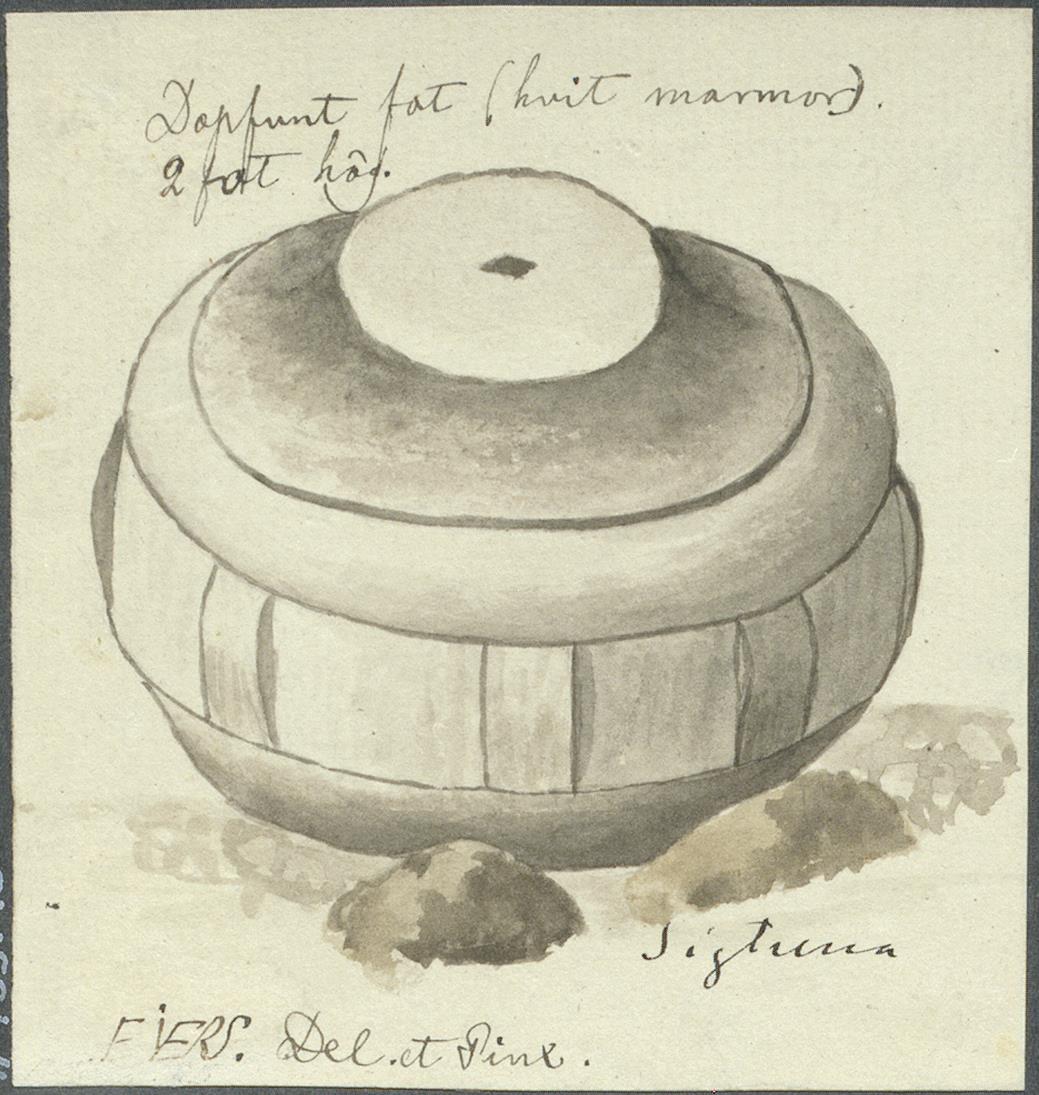 Dopfunt fot (hvit marmor).
2 fot hög.
Sigtuna
Del. et Pinx.